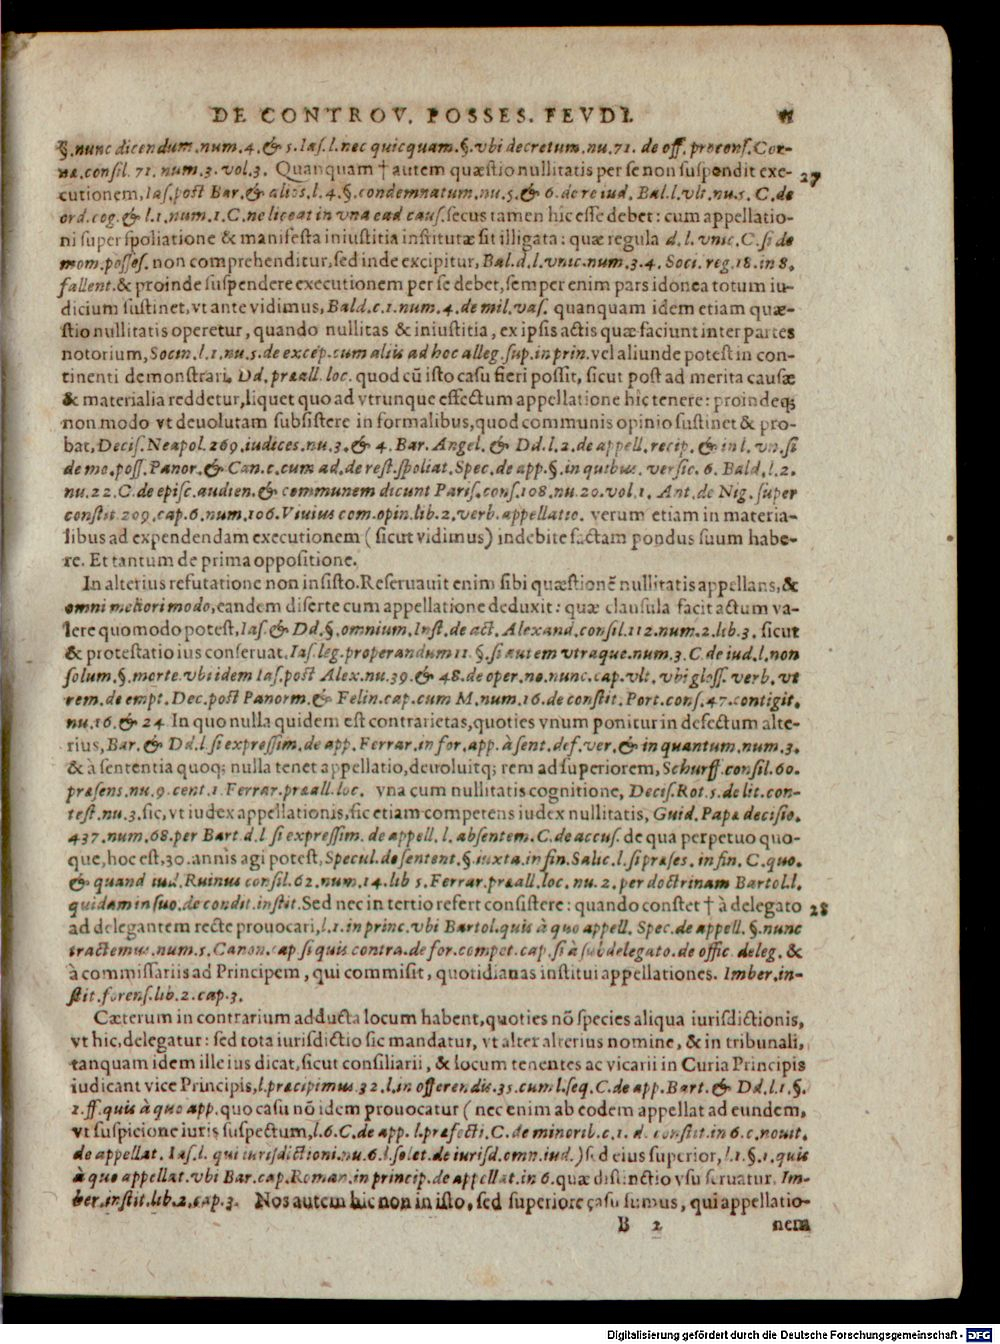 DE CONTROV. POSSES. FEVDI. 11
§.nunc dicendum.num.4.& 5.Ias.l.nec quicquam.§.vbi decretum.nu.71. de off. procons.Cor-
ne.consil. 71. num.3.vol.3. Quanquam † autem quæstio nullitatis per se non suspendit exe- 27
cutionem, Ias.post Bar.& alios.l.4.§.condemnatum.nu.5.& 6.de re iud. Bal.l.vlt.nu.5. C.de
ord.cog.& l.1.num.1.C.ne liceat in vna ead caus.secus tamen hic esse debet: cum appellatio-
ni super spoliatione & manifesta iniustitia institutæ sit illigata: quæ regula d.l.vnic.C.si de
mom.posses. non comprehenditur, sed inde excipitur, Bal.d.l.vnic.num.3.4. Soci.reg.18.in 8.
fallent.& proinde suspendere executionem per se debet, semper enim pars idonea totum iu-
dicium sustinet, vt ante vidimus, Bald.c.1.num.4.de mil.vas. quanquam idem etiam quæ-
stio nullitatis operetur, quando nullitas & iniustitia, ex ipsis actis quæ faciunt inter partes
notorium, Socin.l.1.nu.5.de excep.cum aliis ad hoc alleg.sup.in prin.vel aliunde potest in con-
tinenti demonstrari, Dd.præall.loc. quod cū isto casu fieri possit, sicut post ad merita causæ
& materialia reddetur, liquet quo ad vtrunque effectum appellatione hic tenere: proindeq;
non modo vt deuolutam subsistere in formalibus, quod communis opinio sustinet & pro-
bat, Decis.Neapol.269.iudices.nu.3.& 4. Bar. Angel. & Dd.l.2.de appell.recip. & in l. vn.si
de mo.poss.Panor.& Can.c.cum ad.de rest.spoliat.Spec.de app.§.in quibus. versic.6. Bald.l.2.
nu.22.C.de episc.audien.& communem dicunt Paris.cons.108.nu.20.vol.1. Ant.de Nig.super
constit.209.cap.6.num.106.Viuius com.opin.lib.2.verb.appellatio. verum etiam in materia-
libus ad expendendam executionem (sicut vidimus) indebite factam pondus suum habe-
re. Et tantum de prima oppositione.
In alterius refutatione non insisto. Reseruauit enim sibi quæstionē nullitatis appellans, &
omni meliori modo, eandem diserte cum appellatione deduxit: quæ clausula facit actum va-
lere quomodo potest, Ias.& Dd.§.omnium.Inst.de act. Alexand.consil.112.num.2.lib.3. sicut
& protestatio ius conseruat, Ias.leg.properandum 11.§.si autem vtraque.num.3.C.de iud.l.non
solum.§.morte.vbi idem Ias.post Alex.nu.39.& 48.de oper.no.nunc.cap.vlt. vbi gloss. verb. vt
rem.de empt. Dec.post Panorm.& Felin.cap.cum M.num.16.de constit.Port.cons.47.contigit.
nu.16.& 24 In quo nulla quidem est contrarietas, quoties vnum ponitur in defectum alte-
rius, Bar. & Dd.l.si expressim.de app. Ferrar.in for.app.à sent.def.ver.& in quantum.num.3.
& à sententia quoq; nulla tenet appellatio, deuoluitq; rem ad superiorem, Schurff.consil.60.
præsens.nu.9.cent.1.Ferrar.præall.loc. vna cum nullitatis cognitione, Decis.Rot.5.de lit.con-
test.nu.3.sic, vt iudex appellationis, sic etiam competens iudex nullitatis, Guid.Papæ decisio.
437.num.68.per Bart.d.l si expressim. de appell. l. absentem.C.de accus. de qua perpetuo quo-
que, hoc est, 30. annis agi potest, Specul.de sentent.§.iuxta.in fin.Salic.l.si præses.in fin. C.quo.
& quand iud. Ruinus consil.62.num.14.lib 5. Ferrar.præall.loc. nu.2. per doctrinam Bartol.l.
quidam in suo.de condit.instit. Sed nec in tertio refert consistere: quando constet † à delegato 28
ad delegantem recte prouocari, l.1.in princ.vbi Bartol.quis à quo appell. Spec.de appell. §.nunc
tractemus.num.5.Canon.cap.si quis contra.de for.compet.cap.si à subdelegato.de offic. deleg. &
à commissariis ad Principem, qui commisit, quotidianas institui appellationes. Imber.in-
stit.forens.lib.2.cap.3.
Cæterum in contrarium adducta locum habent, quoties nō species aliqua iurisdictionis,
vt hic, delegatur: sed tota iurisdictio sic mandatur, vt alter alterius nomine, & in tribunali,
tanquam idem ille ius dicat, sicut consiliarii, & locum tenentes ac vicarii in Curia Principis
iudicant vice Principis, l.præcipimus.32.l.in offerendis.35.cum l.seq.C.de app.Bart.& Dd.l.1.§.
1.ff.quis à quo app. quo casu nō idem prouocatur (nec enim ab eodem appellat ad eundem,
vt suspicione iuris suspectum, l.6.C.de app.l.præfecti.C.de minorib.c.1. d. constit.in 6.c.nouit.
de appellat. Ias.l. qui iurisdictioni.nu.6.l.solet.de iurisd.omn.iud.) sed eius superior, l.1.§.1.quis
à quo appellat.vbi Bar.cap.Roman.in princip.de appellat.in 6.quæ distinctio vsu seruatur. Im-
ber.instit.lib.2.cap.3. Nos autem hic non in isto, sed superiore casu sumus, qui appellatio-
B 2 nem
Digitalisierung gefördert durch die Deutsche Forschungsgemeinschaft - DFG